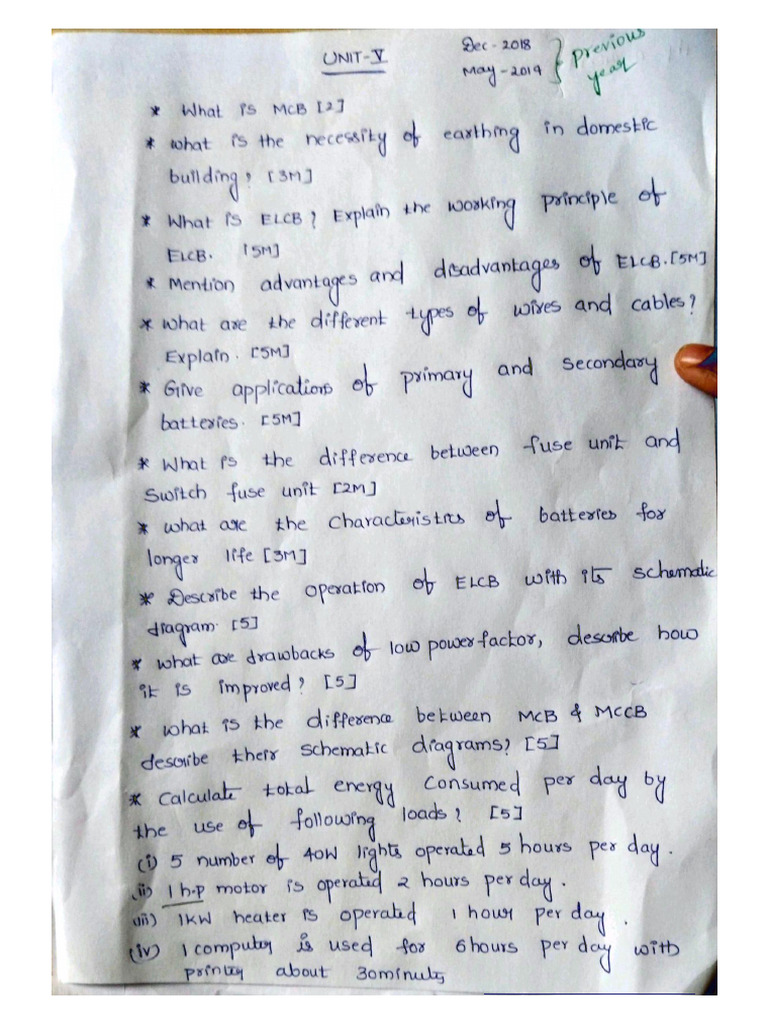 UNIT-V
Dec-2018
May-2019
previous
year
* What is MCB [2]
* what is the necessity of earthing in domestic
building? [3M]
* What is ELCB? Explain the working principle of
ELCB. [5M]
* Mention advantages and disadvantages of ELCB.[5M]
* What are the different types of wires and cables?
Explain. [5M]
* Give applications of primary and secondary
batteries. [5M]
* What is the difference between fuse unit and
Switch fuse unit [2M]
* what are the characteristics of batteries for
longer life [3M]
* Describe the operation of ELCB with its schematic
diagram. [5]
* what are drawbacks of low powerfactor, describe how
it is improved? [5]
* what is the difference between MCB & MCCB
describe their schematic diagrams? [5]
* Calculate total energy consumed per day by
the use of following loads? [5]
(i) 5 number of 40W lights operated 5 hours per day.
(ii) 1 h.p motor is operated 2 hours per day.
(iii) 1KW heater is operated 1 hour per day.
(iv) 1 computer is used for 6hours per day with
printer about 30minutes